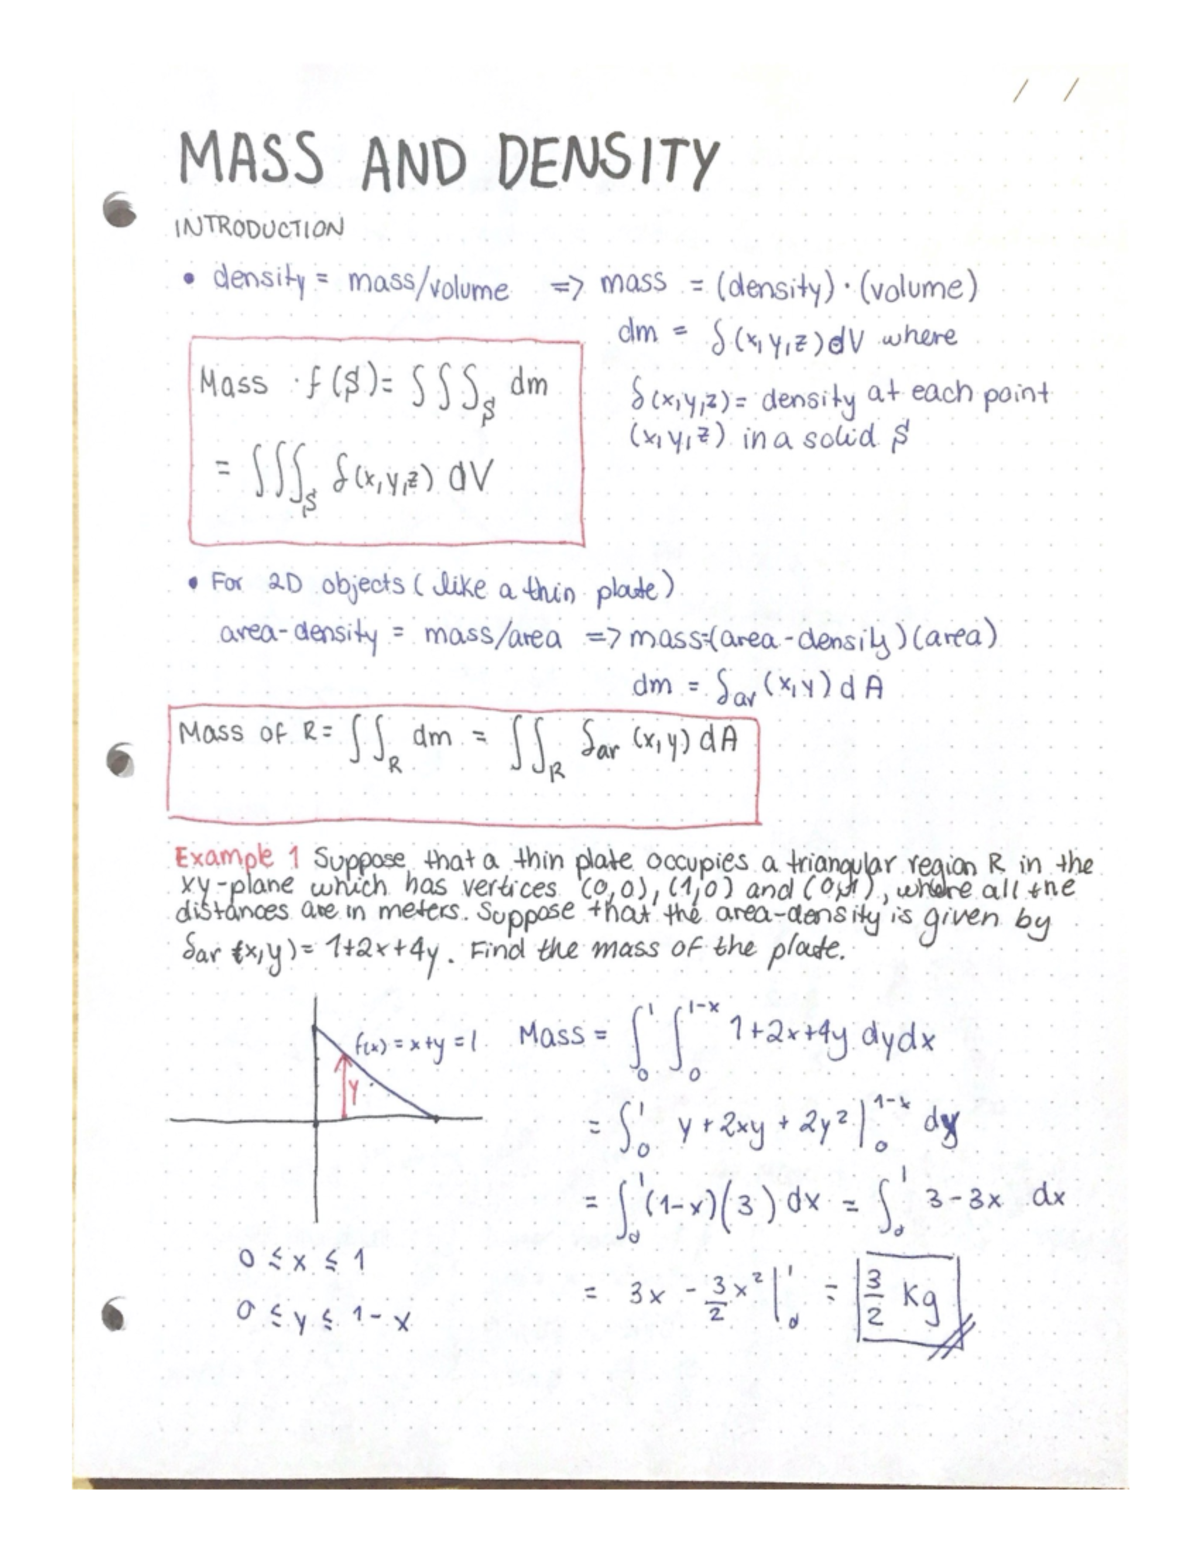 / /
MASS AND DENSITY
INTRODUCTION
• density = mass/volume => mass = (density) · (volume)
dm = δ(x,y,z)dV where
Mass of ($) = ∫∫∫$ dm
δ(x,y,z) = density at each point
(x,y,z) in a solid $
= ∫∫∫$ δ(x,y,z) dV
• For 2D objects (like a thin plate)
area-density = mass/area => mass=(area-density)(area)
dm = δar (x,y) dA
Mass of R = ∫∫R dm = ∫∫R δar (x,y) dA
Example 1 Suppose that a thin plate occupies a triangular region R in the
xy-plane which has vertices (0,0), (1,0) and (0,1), where all the
distances are in meters. Suppose that the area-density is given by
δar (x,y) = 1+2x+4y. Find the mass of the plate.
f(x) = x+y = 1
y
Mass = ∫₀¹ ∫₀¹⁻ˣ 1+2x+4y dydx
= ∫₀¹ y + 2xy + 2y² |₀¹⁻ˣ dy
= ∫₀¹ (1-x)(3) dx = ∫₀¹ 3-3x dx
0 ≤ x ≤ 1
0 ≤ y ≤ 1-x
= 3x - 3/2 x² |₀¹ = 3/2 kg